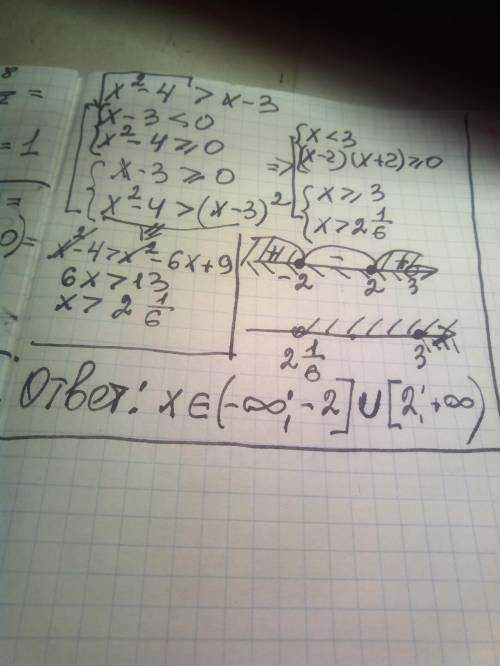 8
2 =
= 1
=
0) =
√x²-4 > x-3
{ x-3<0
x²-4≥0
{ x-3≥0
x²-4>(x-3)²
=> { x<3
(x-2)(x+2)≥0
{ x≥3
x>2 1/6
x²-4>x²-6x+9
6x>13
x> 2 1/6
+ - +
-2 2 3
2 1/6 3
Ответ: x∈(-∞;-2]∪[2;+∞)